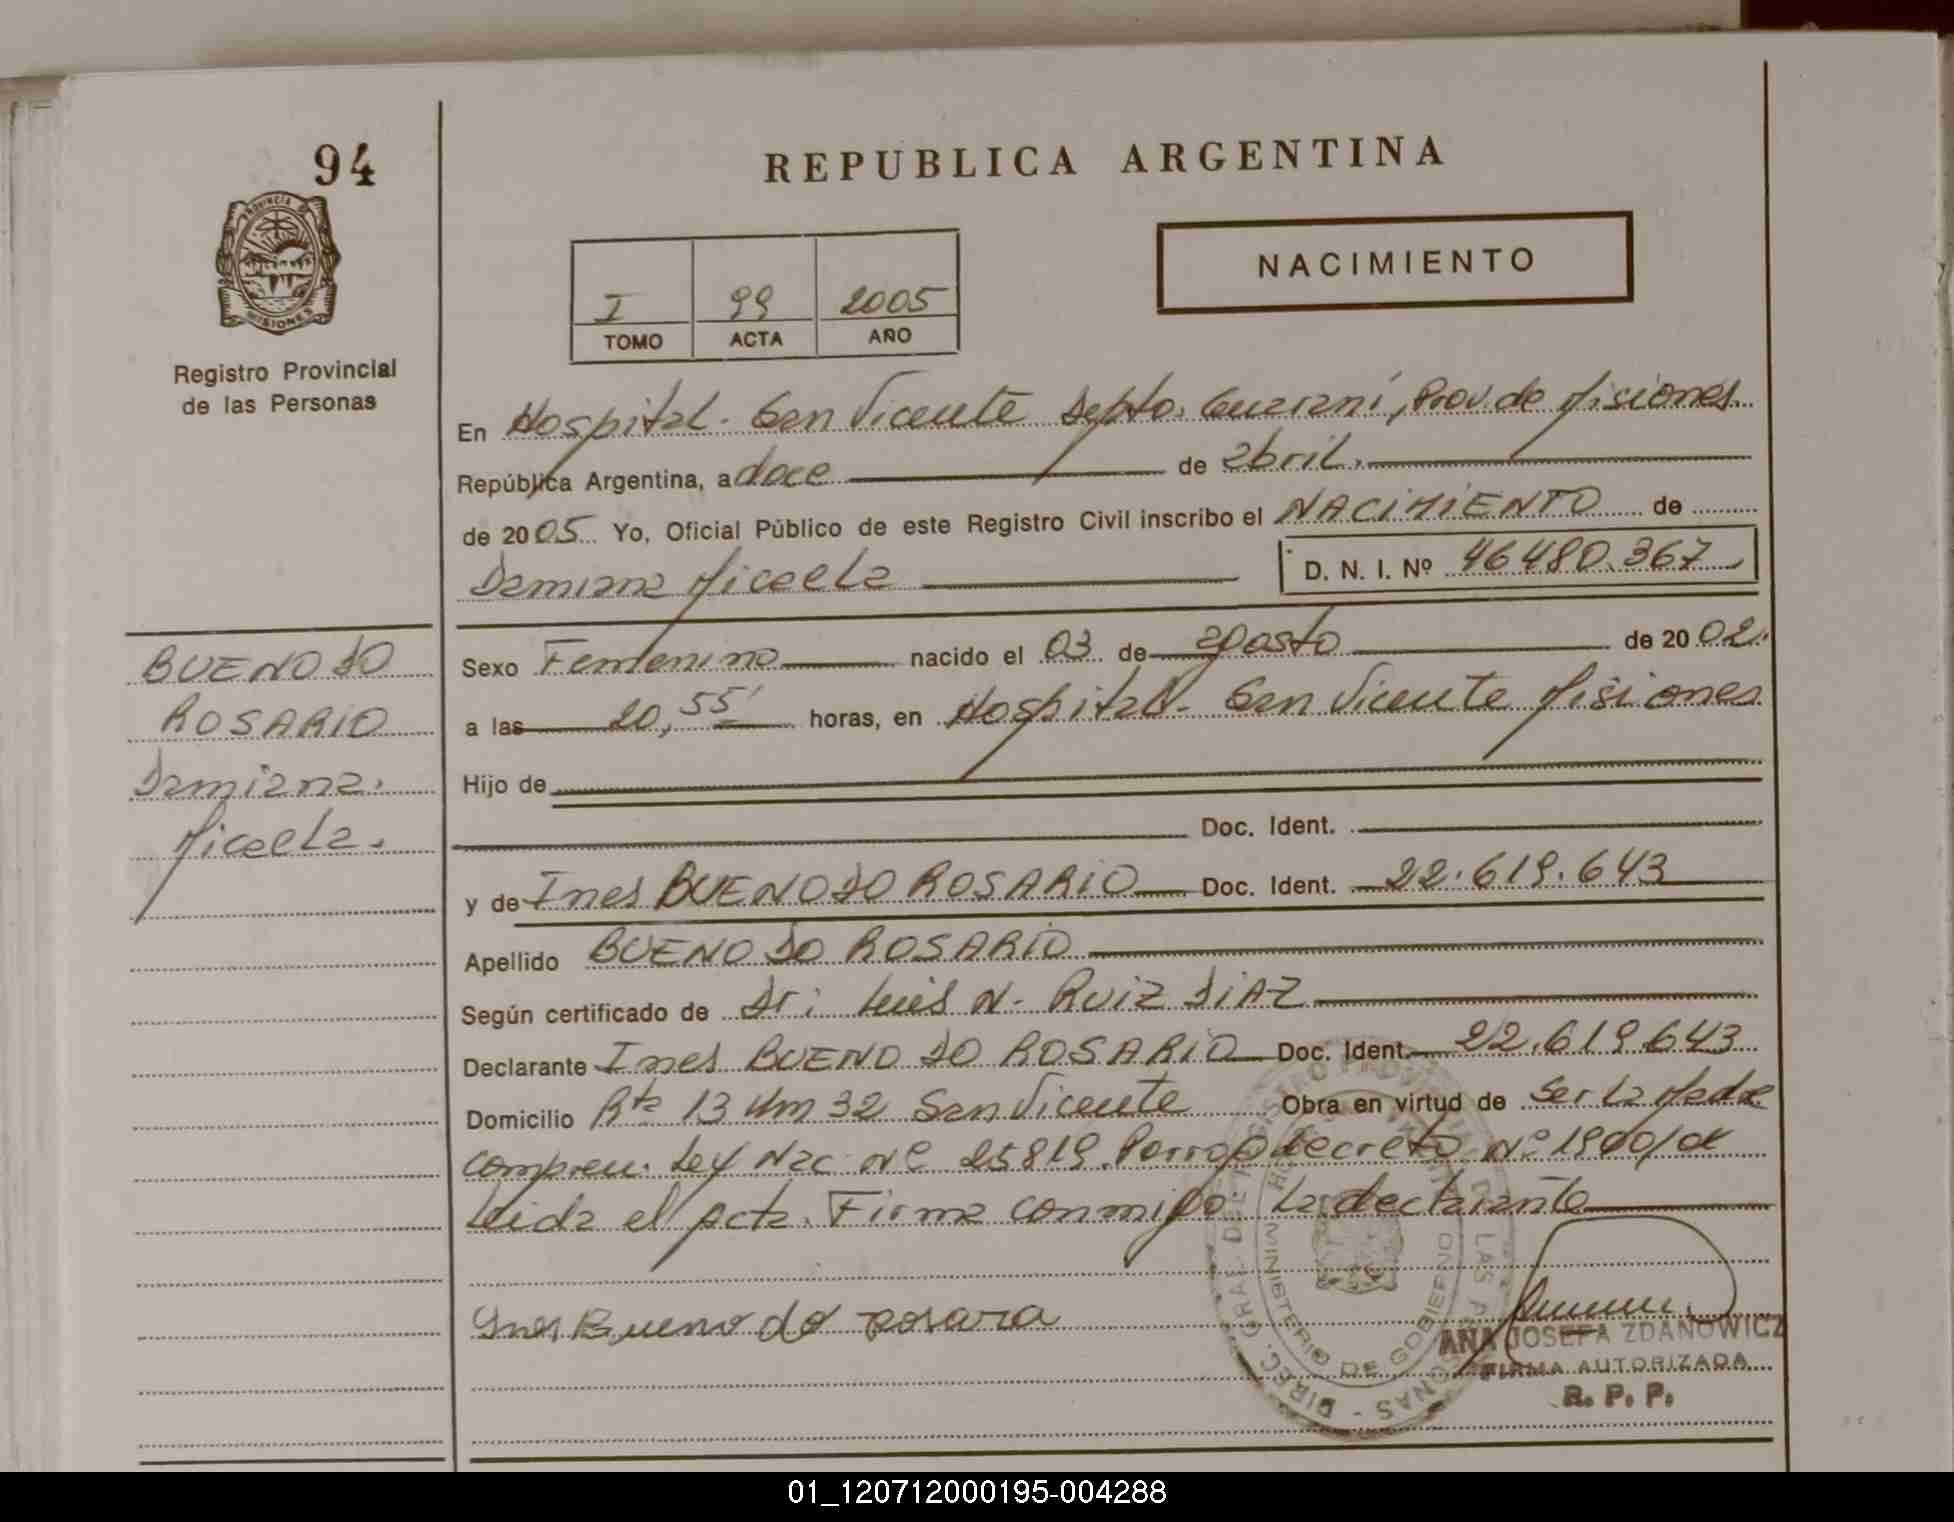 94
REPUBLICA ARGENTINA
PROVINCIA DE
MISIONES
Registro Provincial
de las Personas
NACIMIENTO
I 99 2005
TOMO ACTA AÑO
En Hospital. San Vicente Depto. Guarani, Prov. de Misiones.
República Argentina, a doce de abril.
de 2005 Yo, Oficial Público de este Registro Civil inscribo el NACIMIENTO de
Damiana Micaela D. N. I. Nº 46480.367
BUENO DO
ROSARIO
Damiana.
Micaela.
Sexo Femenino nacido el 03 de agosto de 2002.
a las 20,55' horas, en Hospital. San Vicente Misiones
Hijo de
Doc. Ident.
y de Ines BUENO DO ROSARIO Doc. Ident. 22.619.643
Apellido BUENO DO ROSARIO
Según certificado de Dr: Luis N. Ruiz DIAZ
Declarante Ines BUENO DO ROSARIO Doc. Ident. 22.619.643
Domicilio Rta 13 Km 32 San Vicente Obra en virtud de Ser la Madre
Compren. Ley Nac. Nº 25819. Decreto Nº 1900/04
Leida el Acta. Firma conmigo la declarante
Ines Bueno do rosara
ANA JOSEFA ZDANOWICZ
FIRMA AUTORIZADA
R. P. P.
DIREC. GRAL. DEL REGISTRO PROVINCIAL DE LAS PERSONAS -
MINISTERIO DE GOBIERNO
01_120712000195-004288